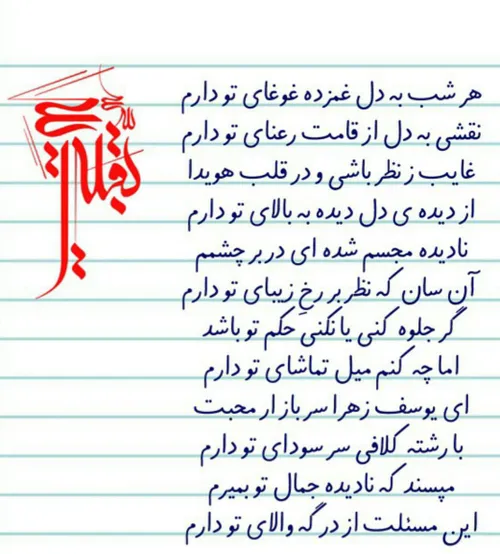 هر شب به دل غمزده غوغای تو دارم
نقشی به دل از قامت رعنای تو دارم
غایب ز نظر باشی و در قلب هویدا
از دیده ی دل دیده به بالای تو دارم
نادیده مجسم شده ای در بر چشمم
آن سان که نظر بر رخ زیبای تو دارم
گر جلوه کنی یا نکنی حکم تو باشد
اما چه کنم میل تماشای تو دارم
ای یوسف زهرا سر بازار محبت
با رشته کلافی سر سودای تو دارم
مپسند که نادیده جمال تو بمیرم
این مسئلت از درگه والای تو دارم
بقیة الله